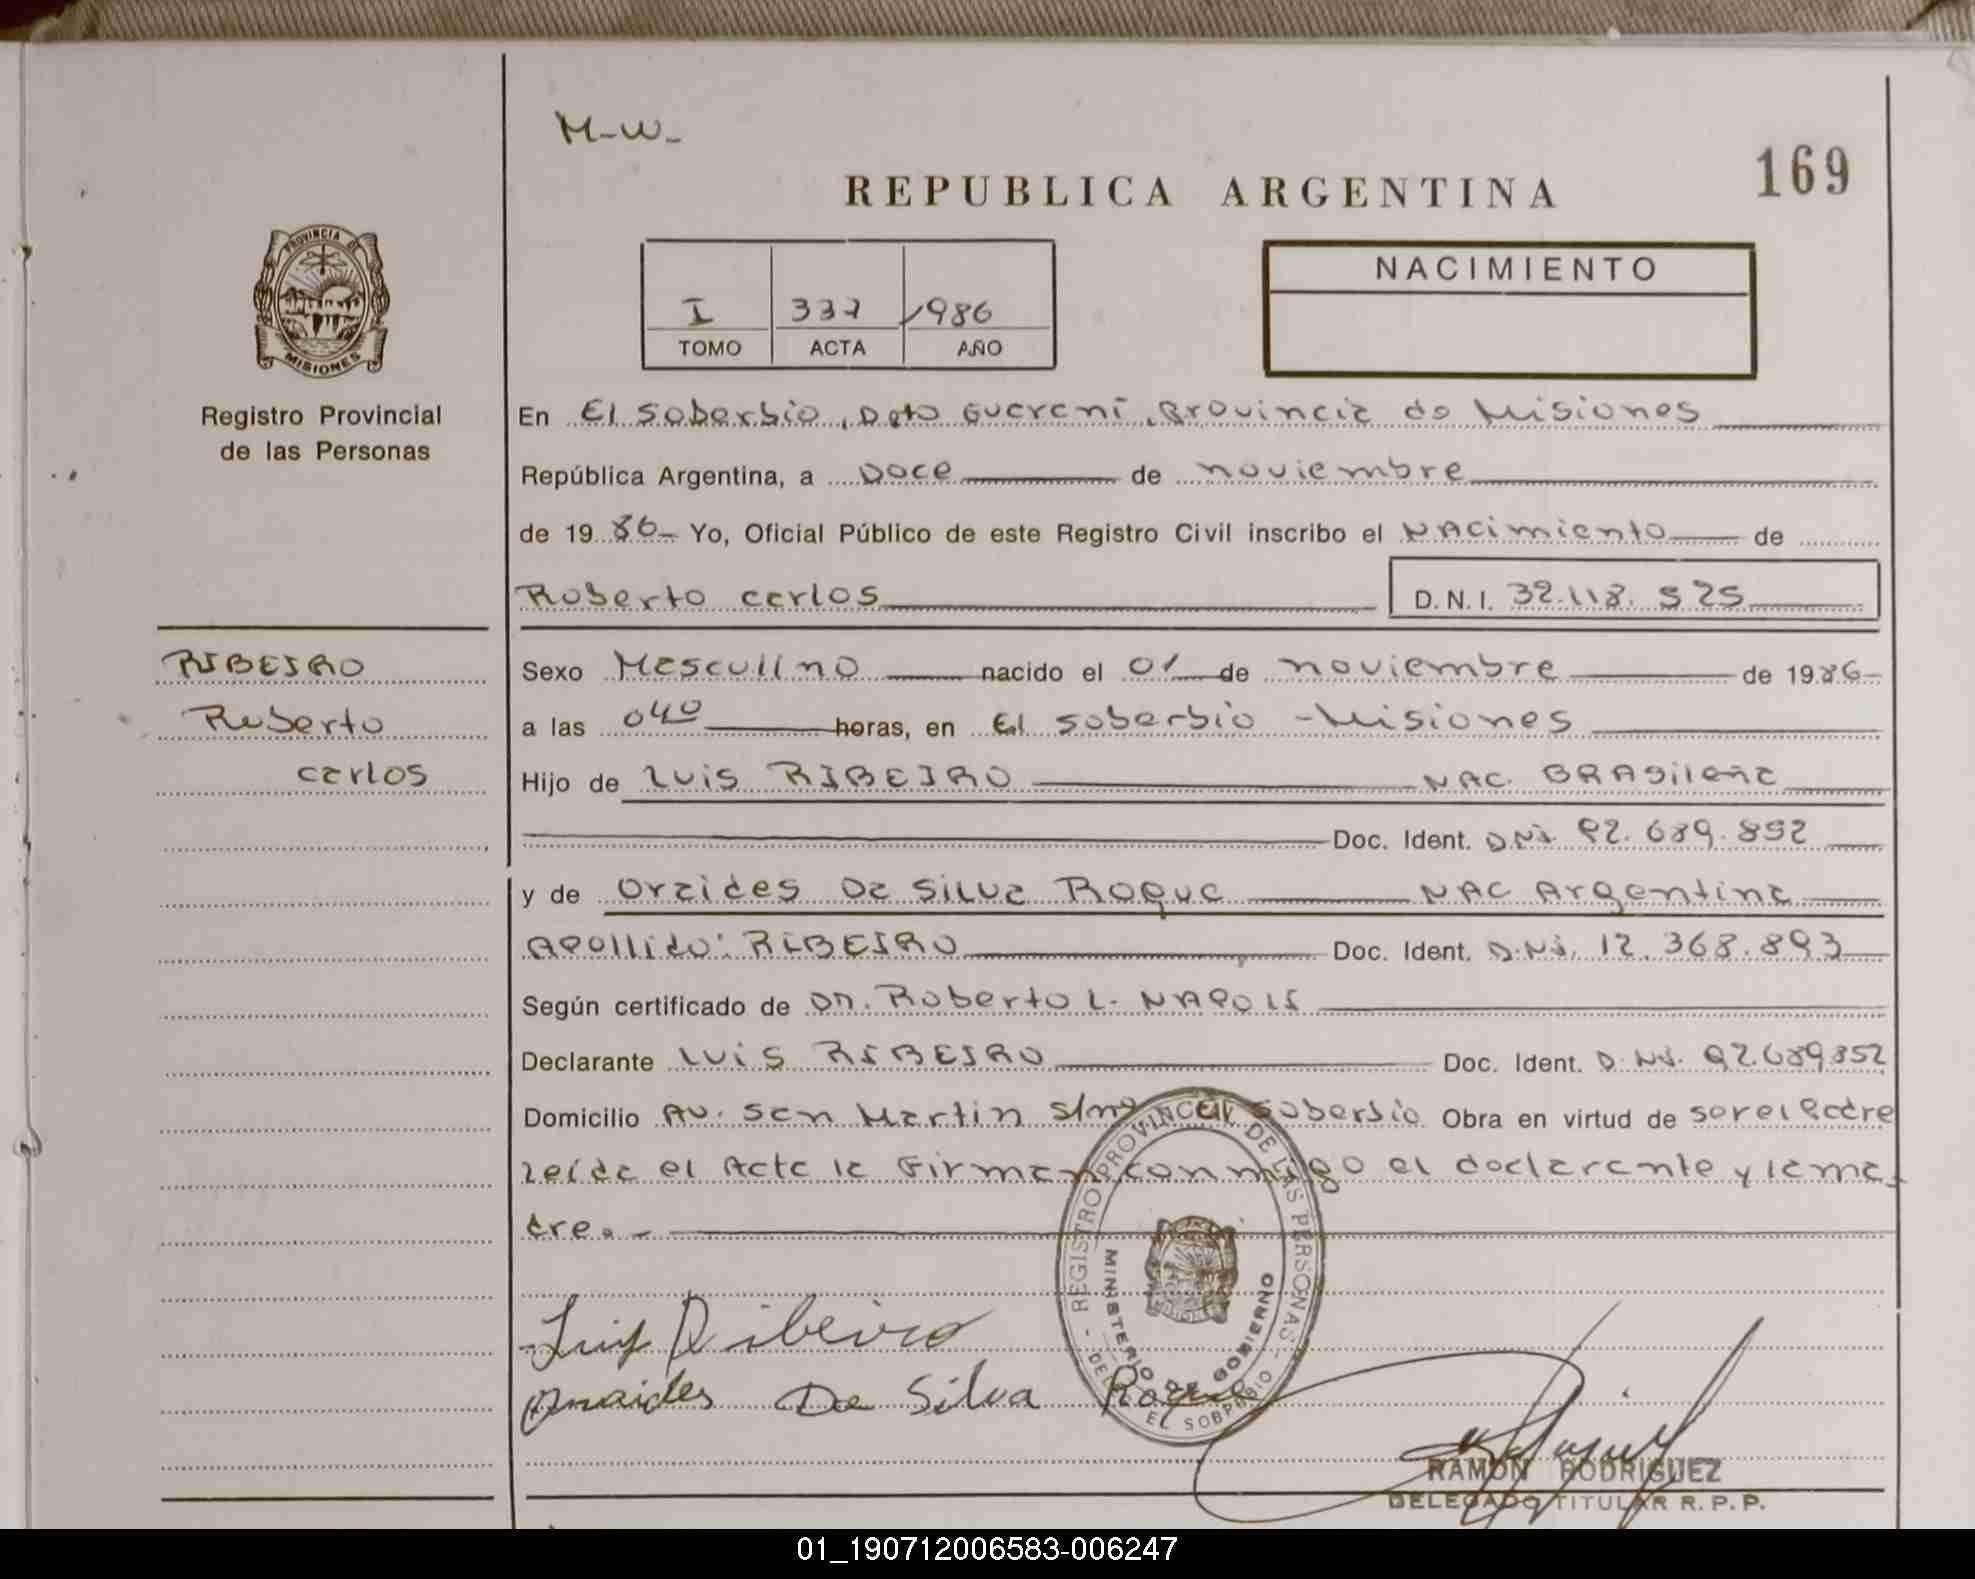 M-W-
REPUBLICA ARGENTINA
169
PROVINCIA DE
MISIONES
Registro Provincial
de las Personas
I 337 1986
TOMO ACTA AÑO
NACIMIENTO
En El Soberbio, Dpto Guarani, Provincia de Misiones
República Argentina, a Doce de noviembre
de 1986- Yo, Oficial Público de este Registro Civil inscribo el NAcimiento de
Roberto carlos D.N.I. 32.118.525
RIBEIRO
Roberto
carlos
Sexo Masculino nacido el 01 de noviembre de 1986-
a las 040 horas, en El soberbio - Misiones
Hijo de Luis RIBEIRO NAC. BRAsileña
Doc. Ident. D.Ni. 92.689.852
y de Oraides Da Silva Roque NAC Argentina
Apellido: RIBEIRO Doc. Ident. D.Ni. 12.368.893
Según certificado de DR. Roberto L. NAPOLI
Declarante Luis RIBEIRO Doc. Ident. D.Ni. 92.689852
Domicilio Av. San Martin s/nº El Soberbio Obra en virtud de ser el Padre
Leída el Acta la Firman conmigo el declarante y la ma-
dre. -
REGISTRO PROVINCIAL DE LAS PERSONAS
MINISTERIO DE GOBIERNO
EL SOBERBIO
Luis Ribeiro
Oraides Da Silva Roque
RAMON RODRIGUEZ
DELEGADO TITULAR R.P.P.
01_190712006583-006247